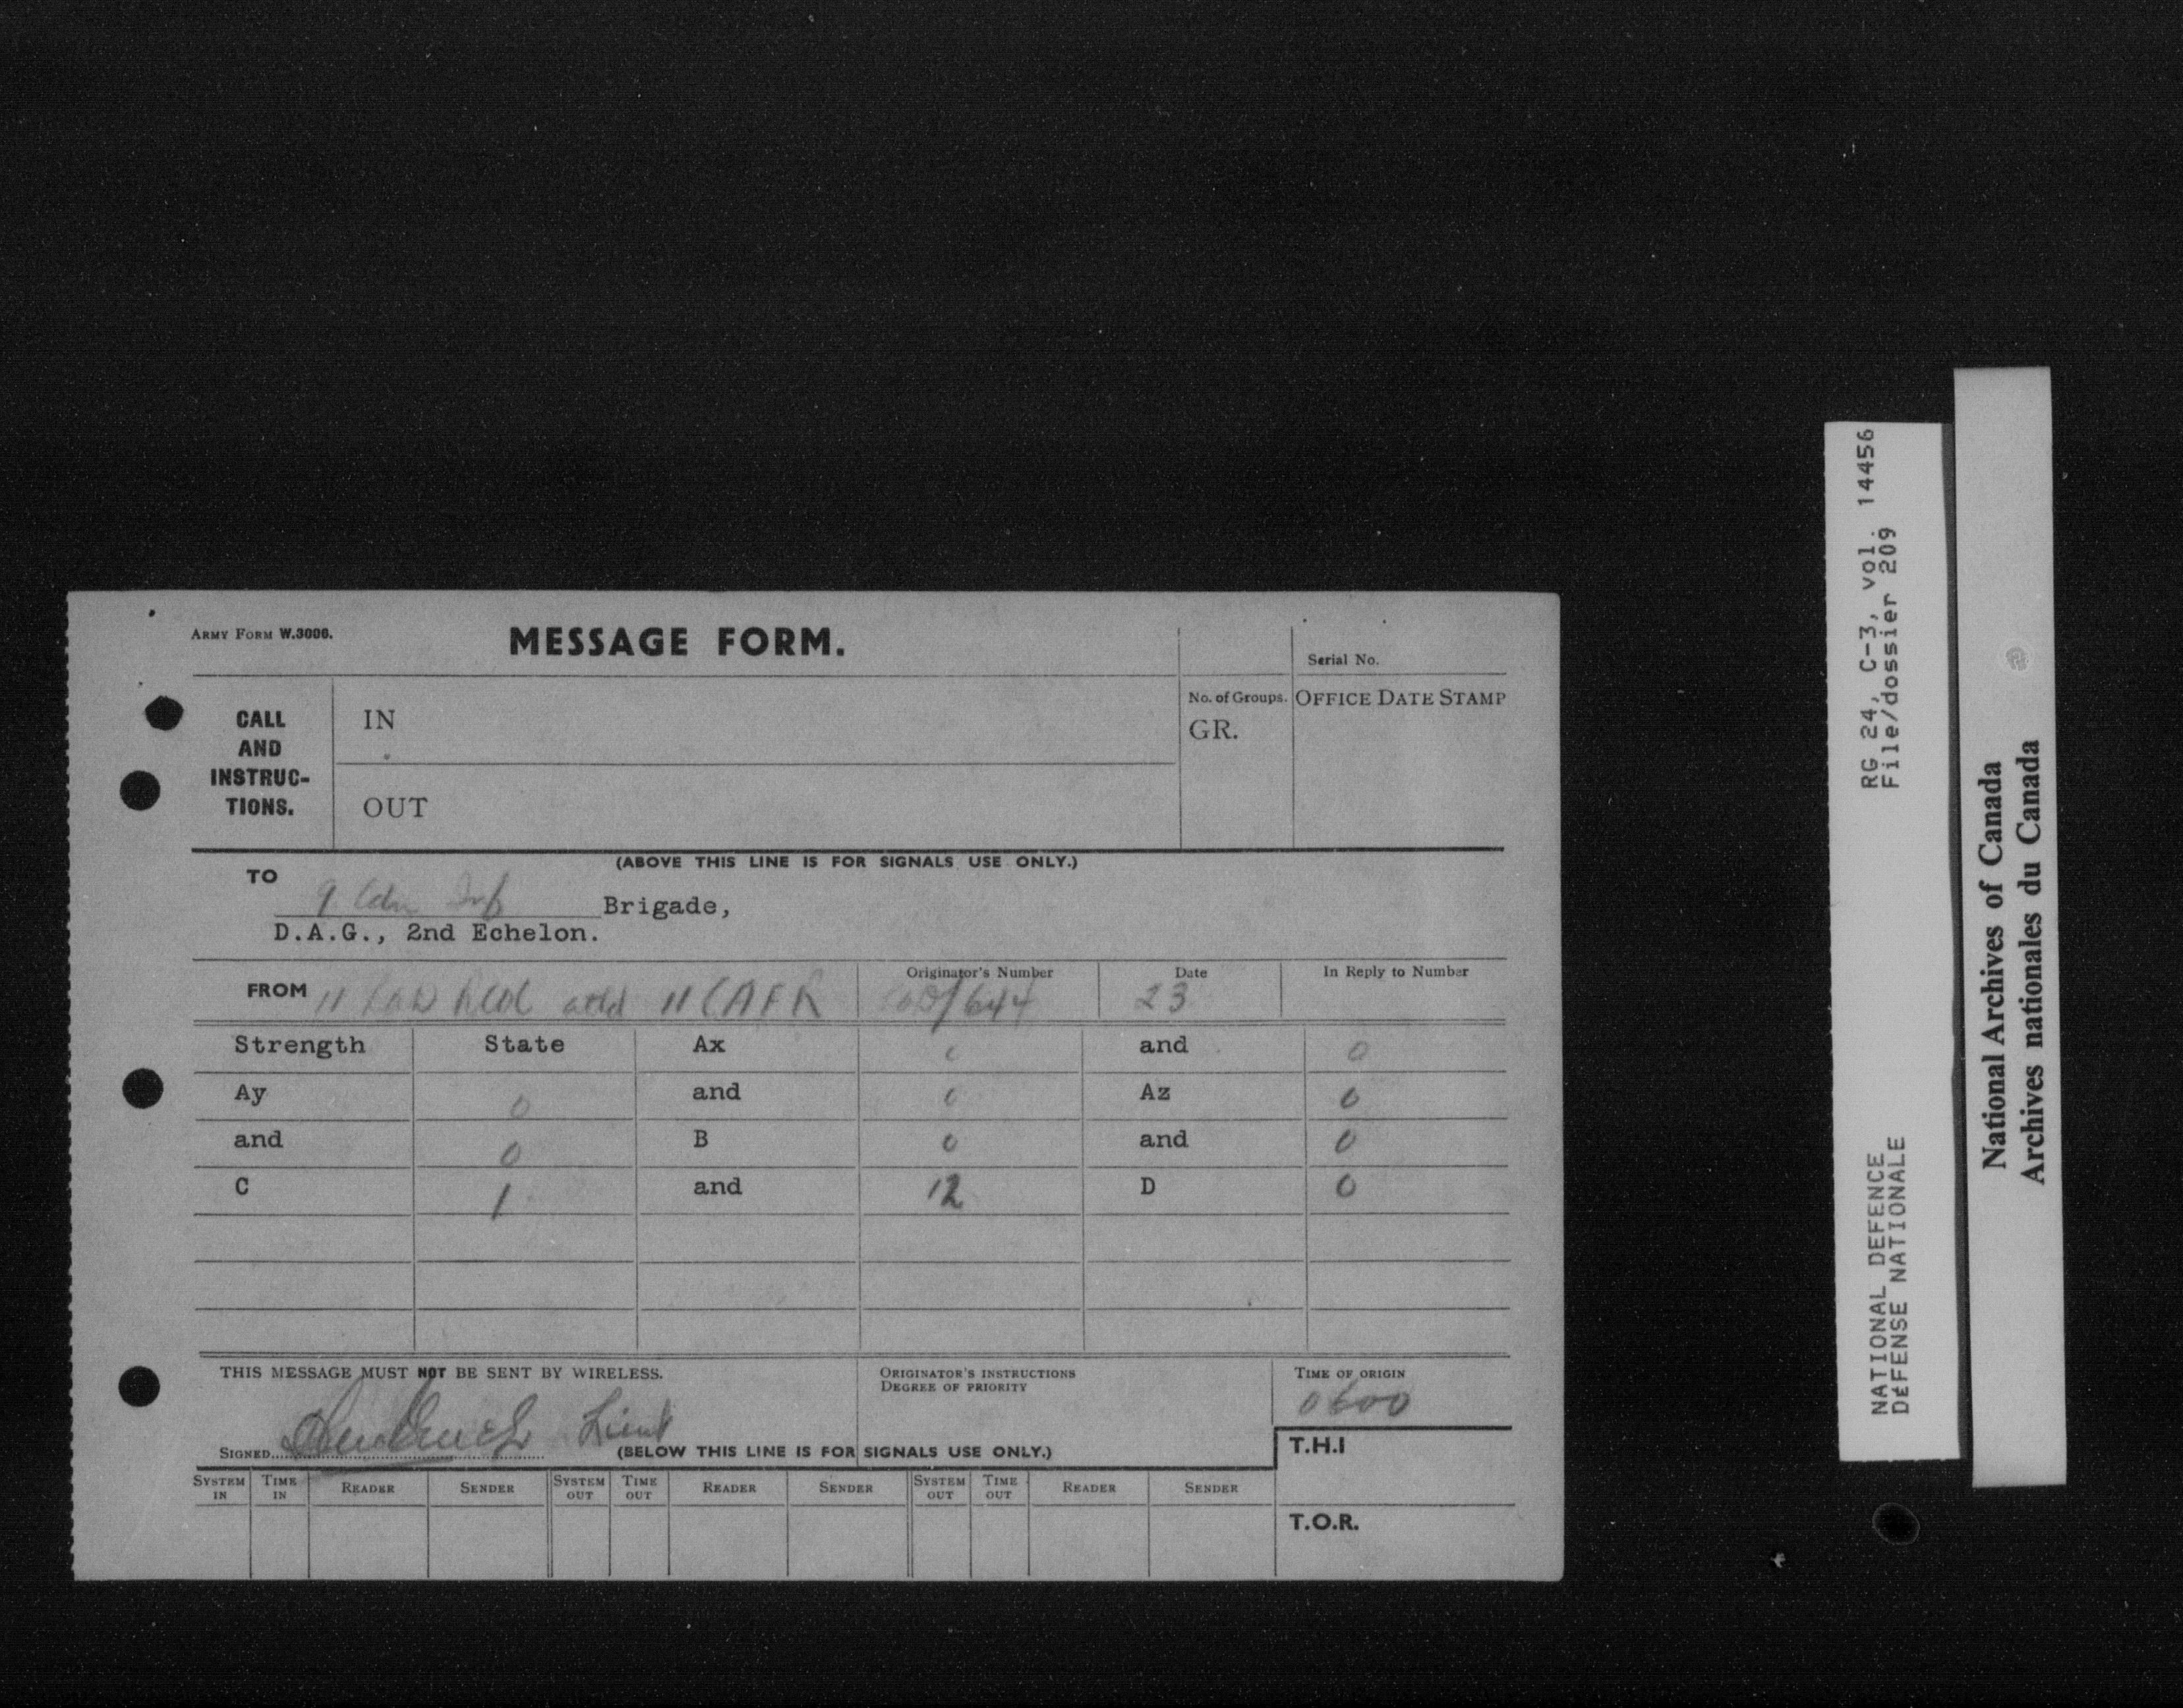 ARMY FORM W.3000.
MESSAGE FORM.
Serial No.
CALL
AND
INSTRUC-
TIONS.
IN
OUT
No. of Groups.
GR.
OFFICE DATE STAMP
(ABOVE THIS LINE IS FOR SIGNALS USE ONLY.)
TO
9 Cdn Inf Brigade,
D.A.G., 2nd Echelon.
Originator's Number Date In Reply to Number
FROM 11 11 CAFR /644 23
Strength State Ax 0 and 0
Ay 0 and 0 Az 0
and 0 B 0 and 0
C 1 and 12 D 0
THIS MESSAGE MUST NOT BE SENT BY WIRELESS.
ORIGINATOR'S INSTRUCTIONS
DEGREE OF PRIORITY
TIME OF ORIGIN
0600
SIGNED Lieut
(BELOW THIS LINE IS FOR SIGNALS USE ONLY.)
T.H.I
SYSTEM IN TIME IN READER SENDER SYSTEM OUT TIME OUT READER SENDER SYSTEM OUT TIME OUT READER SENDER
T.O.R.
RG 24, C-3, vol. 14456
File/dossier 209
NATIONAL DEFENCE
DÉFENSE NATIONALE
National Archives of Canada
Archives nationales du Canada